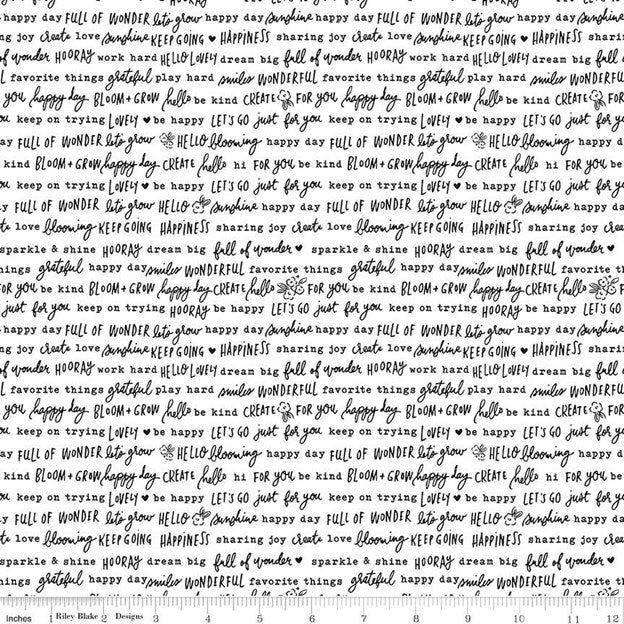 happy day FULL OF WONDER let's grow happy day sunshine happy day FULL OF WONDER let's grow happy day sunshine
ng joy create love sunshine KEEP GOING ♥ HAPPINESS sharing joy create love sunshine KEEP GOING ♥ HAPPINESS shari
of wonder HOORAY work hard HELLO LOVELY dream big full of wonder HOORAY work hard HELLO LOVELY dream big full
L favorite things grateful play hard smiles WONDERFUL favorite things grateful play hard smiles WONDERFUL
you happy day BLOOM + GROW hello be kind CREATE FOR you happy day BLOOM + GROW hello be kind CREATE FOR
ou keep on trying LOVELY ♥ be happy LET'S GO just for you keep on trying LOVELY ♥ be happy LET'S GO just for you
ay FULL OF WONDER let's grow HELLO blooming happy day FULL OF WONDER let's grow HELLO blooming happy d
kind BLOOM + GROW happy day CREATE hello hi FOR you be kind BLOOM + GROW happy day CREATE hello hi FOR you be
ou keep on trying LOVELY ♥ be happy LET'S GO just for you keep on trying LOVELY ♥ be happy LET'S GO just for you
y FULL OF WONDER let's grow HELLO sunshine happy day FULL OF WONDER let's grow HELLO sunshine happy da
te love blooming KEEP GOING HAPPINESS sharing joy create love blooming KEEP GOING HAPPINESS sharing joy crea
sparkle & shine HOORAY dream big full of wonder ♥ sparkle & shine HOORAY dream big full of wonder ♥
hings grateful happy day smiles WONDERFUL favorite things grateful happy day smiles WONDERFUL favorite t
FOR you be kind BLOOM + GROW happy day CREATE hello FOR you be kind BLOOM + GROW happy day CREATE hello F
just for you keep on trying HOORAY be happy LET'S GO just for you keep on trying HOORAY be happy LET'S GO
happy day FULL OF WONDER let's grow happy day sunshine happy day FULL OF WONDER let's grow happy day sunshine
ng joy create love sunshine KEEP GOING ♥ HAPPINESS sharing joy create love sunshine KEEP GOING ♥ HAPPINESS shari
of wonder HOORAY work hard HELLO LOVELY dream big full of wonder HOORAY work hard HELLO LOVELY dream big full
L favorite things grateful play hard smiles WONDERFUL favorite things grateful play hard smiles WONDERFUL
you happy day BLOOM + GROW hello be kind CREATE FOR you happy day BLOOM + GROW hello be kind CREATE FOR
ou keep on trying LOVELY ♥ be happy LET'S GO just for you keep on trying LOVELY ♥ be happy LET'S GO just for you
ay FULL OF WONDER let's grow HELLO blooming happy day FULL OF WONDER let's grow HELLO blooming happy d
kind BLOOM + GROW happy day CREATE hello hi FOR you be kind BLOOM + GROW happy day CREATE hello hi FOR you be
ou keep on trying LOVELY ♥ be happy LET'S GO just for you keep on trying LOVELY ♥ be happy LET'S GO just for you
y FULL OF WONDER let's grow HELLO sunshine happy day FULL OF WONDER let's grow HELLO sunshine happy da
te love blooming KEEP GOING HAPPINESS sharing joy create love blooming KEEP GOING HAPPINESS sharing joy crea
sparkle & shine HOORAY dream big full of wonder ♥ sparkle & shine HOORAY dream big full of wonder ♥
hings grateful happy day smiles WONDERFUL favorite things grateful happy day smiles WONDERFUL favorite t
Inches 1 Riley Blake 2 Designs 3 4 5 6 7 8 9 10 11 12